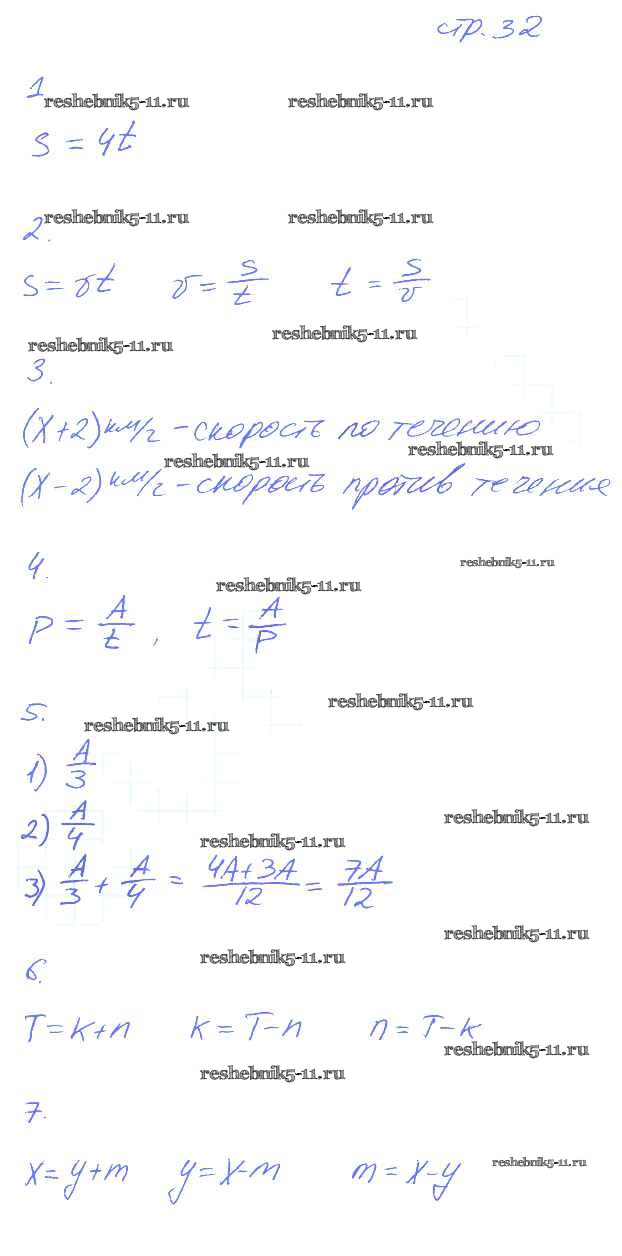 стр. 32
1 reshebnik5-11.ru reshebnik5-11.ru
S = 4t
reshebnik5-11.ru reshebnik5-11.ru
2.
S = vt v = s/t t = s/v
reshebnik5-11.ru reshebnik5-11.ru
3.
(x+2) км/г – скорость по течению
reshebnik5-11.ru reshebnik5-11.ru
(x–2) км/г – скорость против течения
4. reshebnik5-11.ru
reshebnik5-11.ru
P = A/t , t = A/P
5. reshebnik5-11.ru
reshebnik5-11.ru
1) A/3
2) A/4 reshebnik5-11.ru
reshebnik5-11.ru
3) A/3 + A/4 = (4A+3A)/12 = 7A/12
reshebnik5-11.ru
6. reshebnik5-11.ru
T = k+n k = T–n n = T–k
reshebnik5-11.ru
reshebnik5-11.ru
7.
x = y+m y = x–m m = x–y reshebnik5-11.ru